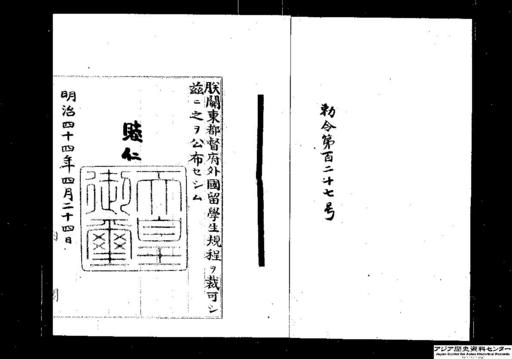 勅令第百二十七号
朕關東都督府外國留學生規程ヲ裁可シ
茲ニ之ヲ公布セシム
睦仁
天皇
御璽
明治四十四年四月二十四日
アジア歴史資料センター
Japan Center for Asian Historical Records